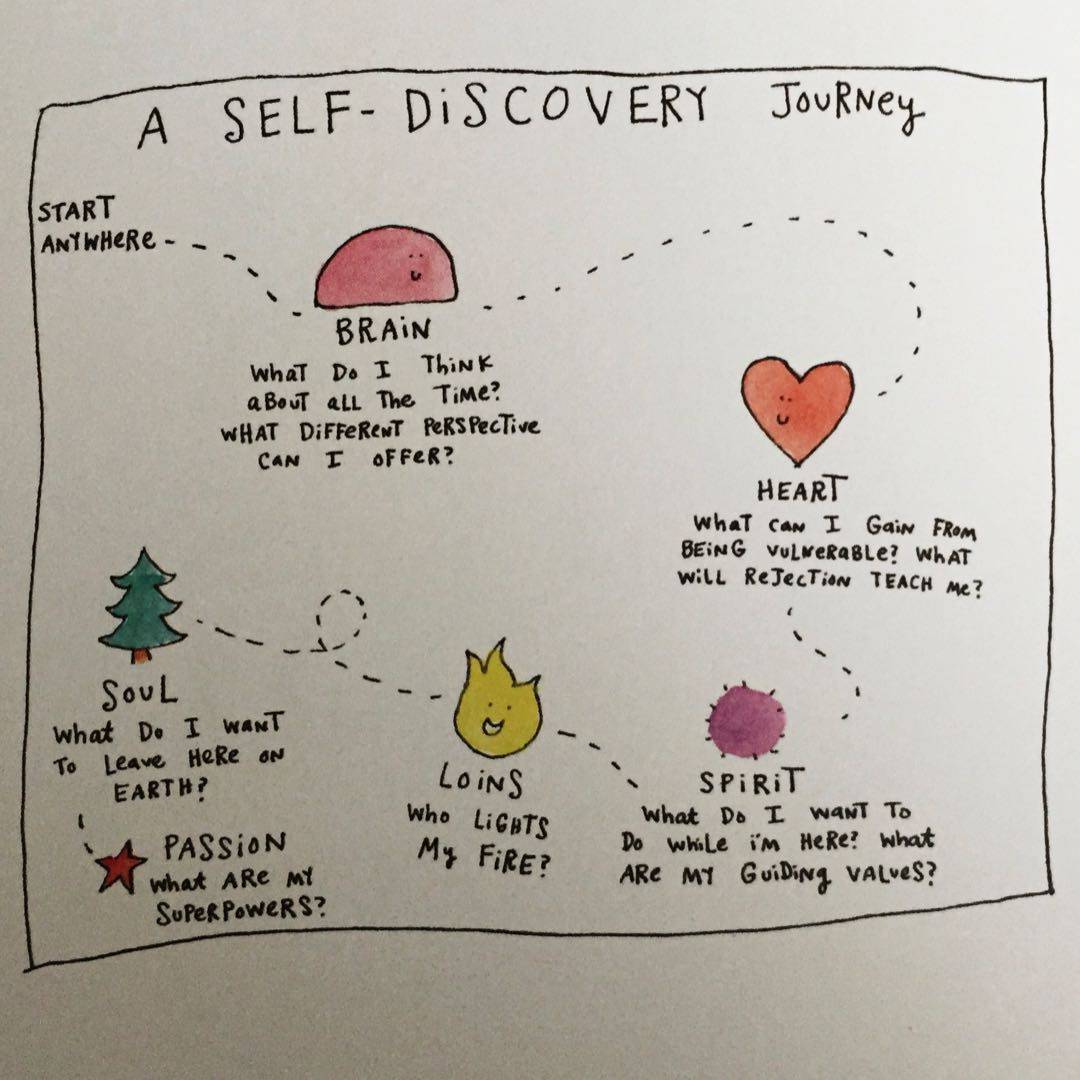 A SELF-DiSCOVERY JOURNey
START
ANYWHeRe
BRAiN
WHaT Do I THiNK
aBouT aLL THe TiMe?
WHAT DiFFeReNT PeRSPecTive
CAN I oFFeR?
HEART
WHaT caN I GaiN FRoM
BEiNG vuLNeRaBLe? WHAT
WiLL ReJecTioN TEACH Me?
SPiRiT
WHaT Do I WaNT To
Do WHiLe i'M HeRe? WHaT
ARe MY GuiDiNg VALueS?
LoiNS
WHo LiGHTS
My FiRE?
SouL
WHaT Do I WaNT
To Leave HeRe oN
EARTH?
PASSioN
WHaT ARe MY
SuPeRPoweRS?